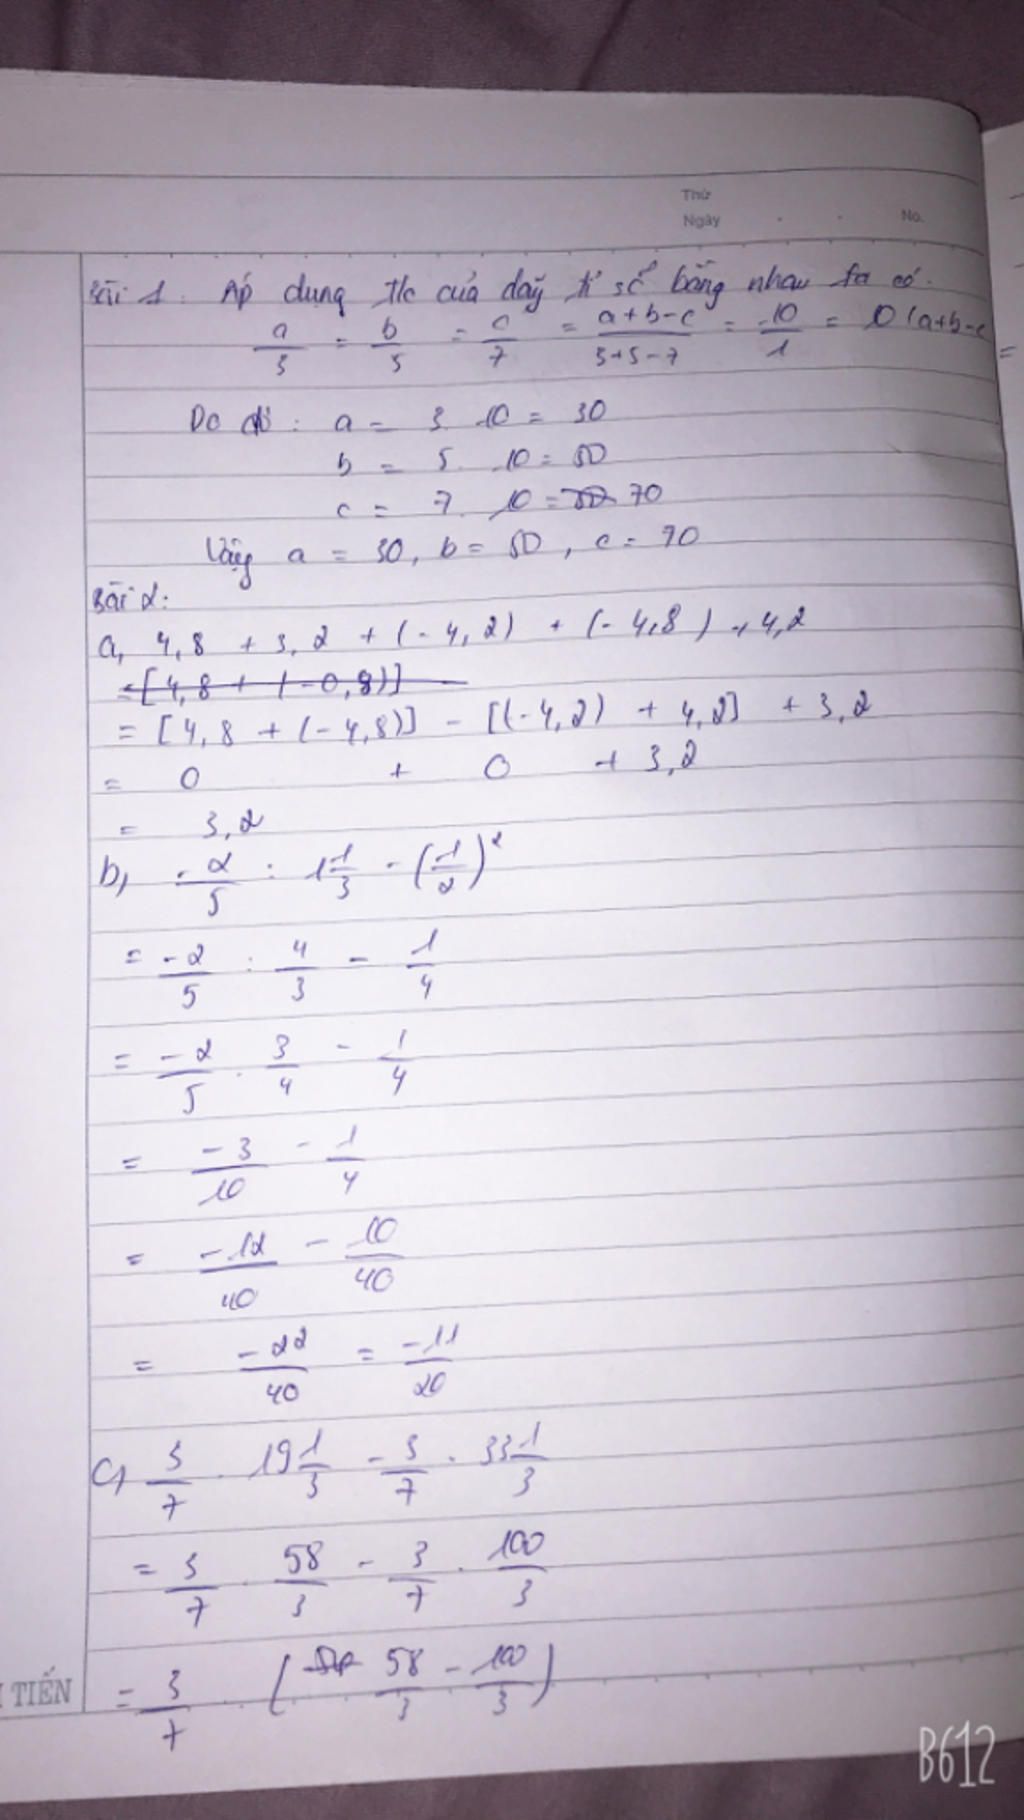 Thứ
Ngày . . No.
Bài 1. Áp dụng t/c của dãy tỉ số bằng nhau ta có.
a/3 = b/5 = c/7 = a+b-c/3+5-7 = 10/1 = 10 (a+b-c
=
Do đó: a = 3. 10 = 30
b = 5. 10 = 50
c = 7. 10 = 70
Vậy a = 30, b = 50, c = 70
Bài 2:
a, 4,8 + 3,2 + (-4,2) + (-4,8) + 4,2
= [4,8 + (-0,8)]
= [4,8 + (-4,8)] - [(-4,2) + 4,2] + 3,2
= 0 + 0 + 3,2
= 3,2
b, -2/5 : 1 1/3 - (1/2)²
= -2/5 : 4/3 - 1/4
= -2/5 . 3/4 - 1/4
= -3/10 - 1/4
= -12/40 - 10/40
= -22/40 = -11/20
c, 3/7 . 19 1/3 - 3/7 . 33 1/3
= 3/7 . 58/3 - 3/7 . 100/3
= 3/7 . (58/3 - 100/3)
TIẾN
B612